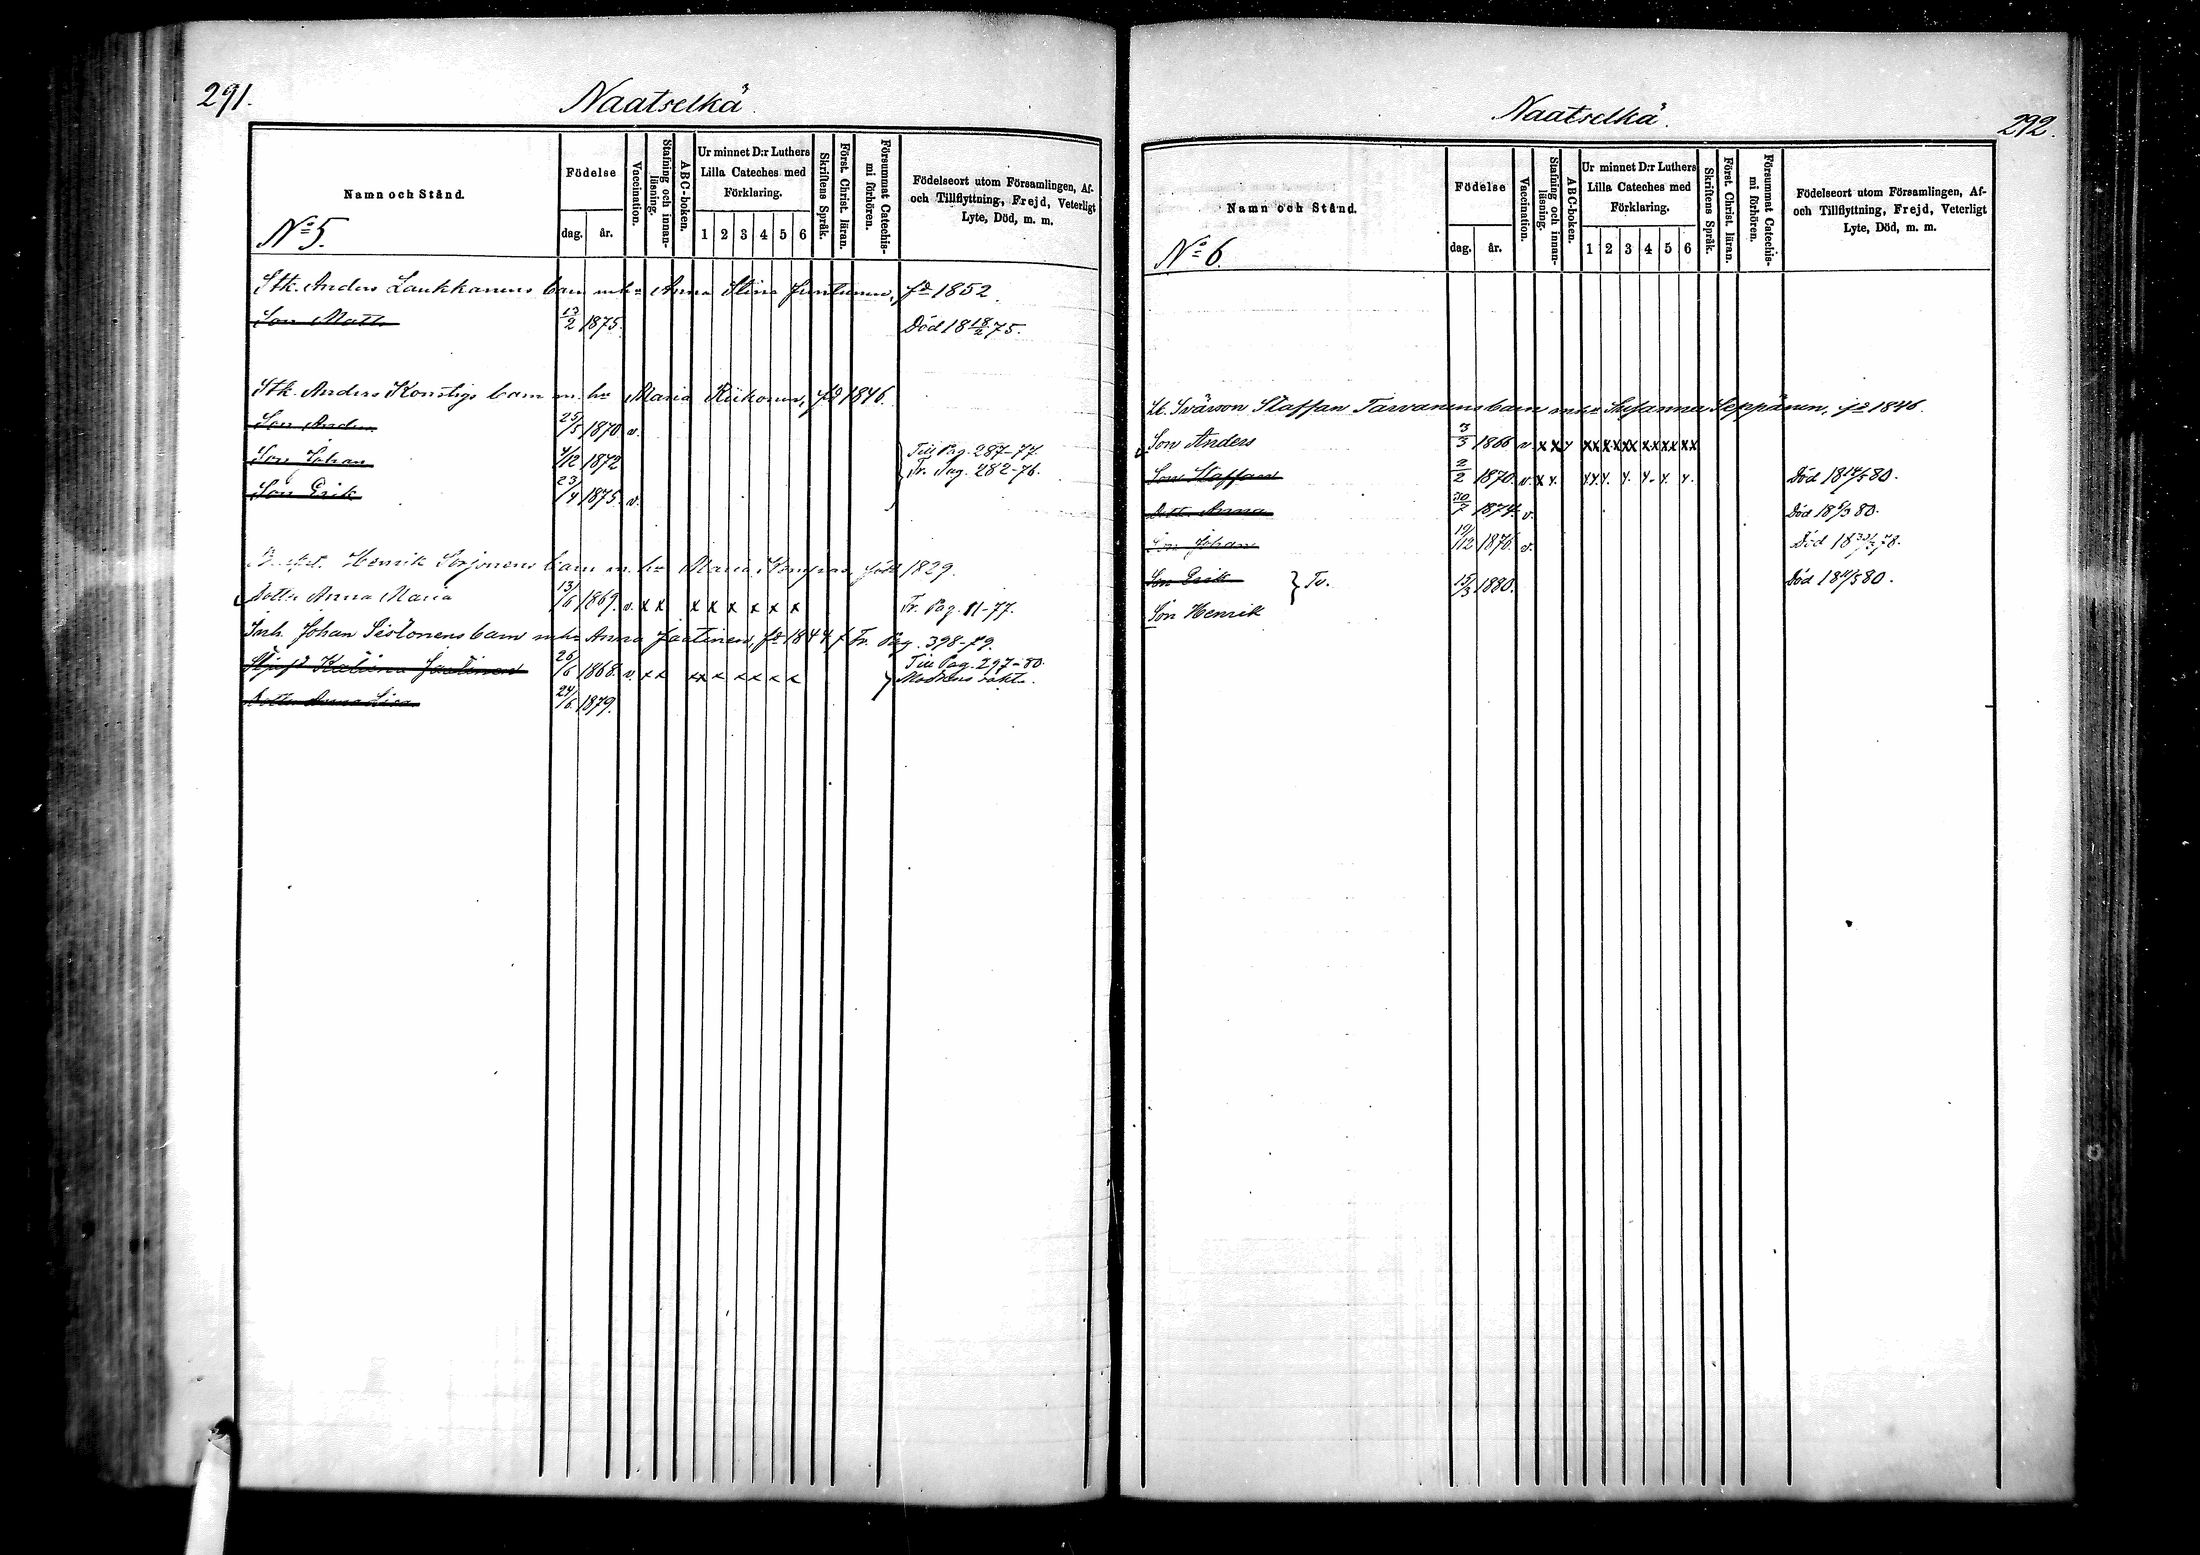 291.
Naatselkä.
Namn och Stånd.
Födelse
dag. år.
Vaccination.
Stafning och innan-läsning.
ABC-boken.
Ur minnet D:r Luthers
Lilla Cateches med
Förklaring.
1 2 3 4 5 6
Skriftens Språk.
Först. Christ. läran.
Försummat Catechis-mi förhören.
Födelseort utom Församlingen, Af-
och Tillflyttning, Frejd, Veterligt
Lyte, Död, m. m.
No 5.
Stk. Anders Laukkanens barn m. hu Anna Stina Juntunen, fd 1852.
Son Matts 13/2 1875. Död 18 18/2 75.
Stk. Anders Konstigs barn m. hu Maria Riikonen, fd 1846.
Son Anders 25/5 1870 v.
Son Johan 4/12 1872 Till Pag. 287-77.
Fr. Pag. 282-76.
Son Erik 23/4 1875. v.
Henrik Sorjonens barn m. hu Maria född 1829.
Dotter Anna Maria 13/6 1869. v. x x x x x x x x Fr. Pag. 81-77.
Inh. Johan Sistonens barn m. hu Anna Jaatinen, fd 1844 / Fr. Pag. 398-79.
Katarina Jaatinen 26/6 1868. v. x x x x x x x x Till Pag. 297-80.
Modrens
Dotter Anna Lisa 24/6 1879.
Naatselkä.
292.
Namn och Stånd.
Födelse
dag. år.
Vaccination.
Stafning och innan-läsning.
ABC-boken.
Ur minnet D:r Luthers
Lilla Cateches med
Förklaring.
1 2 3 4 5 6
Skriftens Språk.
Först. Christ. läran.
Försummat Catechis-mi förhören.
Födelseort utom Församlingen, Af-
och Tillflyttning, Frejd, Veterligt
Lyte, Död, m. m.
No 6.
Svärson Staffan Tarvanens barn m. hu Susanna Seppänen, fd 1846.
Son Anders 3/3 1866 v. x x x x x x x x x x x x x x x
Son Staffan 2/2 1870. v. x x. x x x. x. x. x. x. Död 18 14/5 80.
Dott. Anna 30/7 1874. v. Död 18 80.
Son Johan 19/12 1876. v. Död 18 78.
Son Erik } Tv. 15/3 1880. Död 18 11/5 80.
Son Henrik